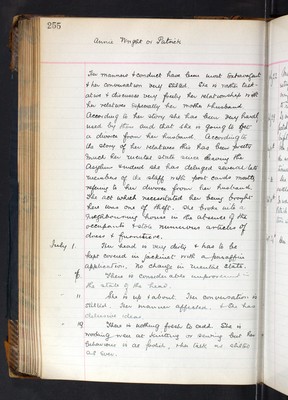 255
Annie Wright or Patrick
Her manners & conduct have been most extravagant
& her conversation very silly. She is rather talk-
ative & discusses very freely her relationship with
her relatives especially her mother & husband.
According to her story she has been very hardly
used by them and that she is going to get
a divorce from her husband. According to
the story of her relatives this has been pretty
much her mental state since leaving the
Asylum & indeed she has deluged several
members of the staff with post cards mostly
referring to her divorce from her husband.
The act which necessitated her being brought
here was one of theft. She broke into a
neighbouring house in the absence of the
occupants & stole numerous articles of
dress & furniture.
July 1. Her head is very dirty & has to be
kept covered in jackinet with a paraffin
application. No change in mental state.
There is considerable improvement in
the state of the head.
11 She is up & about. Her conversation is
silly. Her manner affected, & she has
delusive ideas.
19 There is nothing fresh to add. She is
working now at knitting or sewing but her
behaviour is as foolish, & her talk as
as ever.